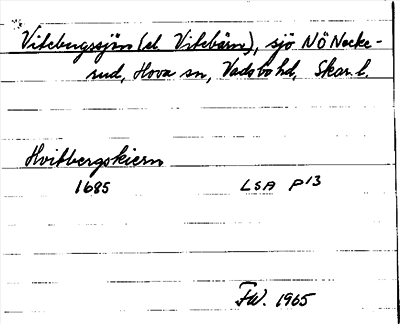 Vitebergssjön (el Vitebärn), sjö NÖ Necke-
rud, Hova sn, Vadsbo hd, Skar. l.
Hvitbergskiern
1685 LSA P13
FW. 1965